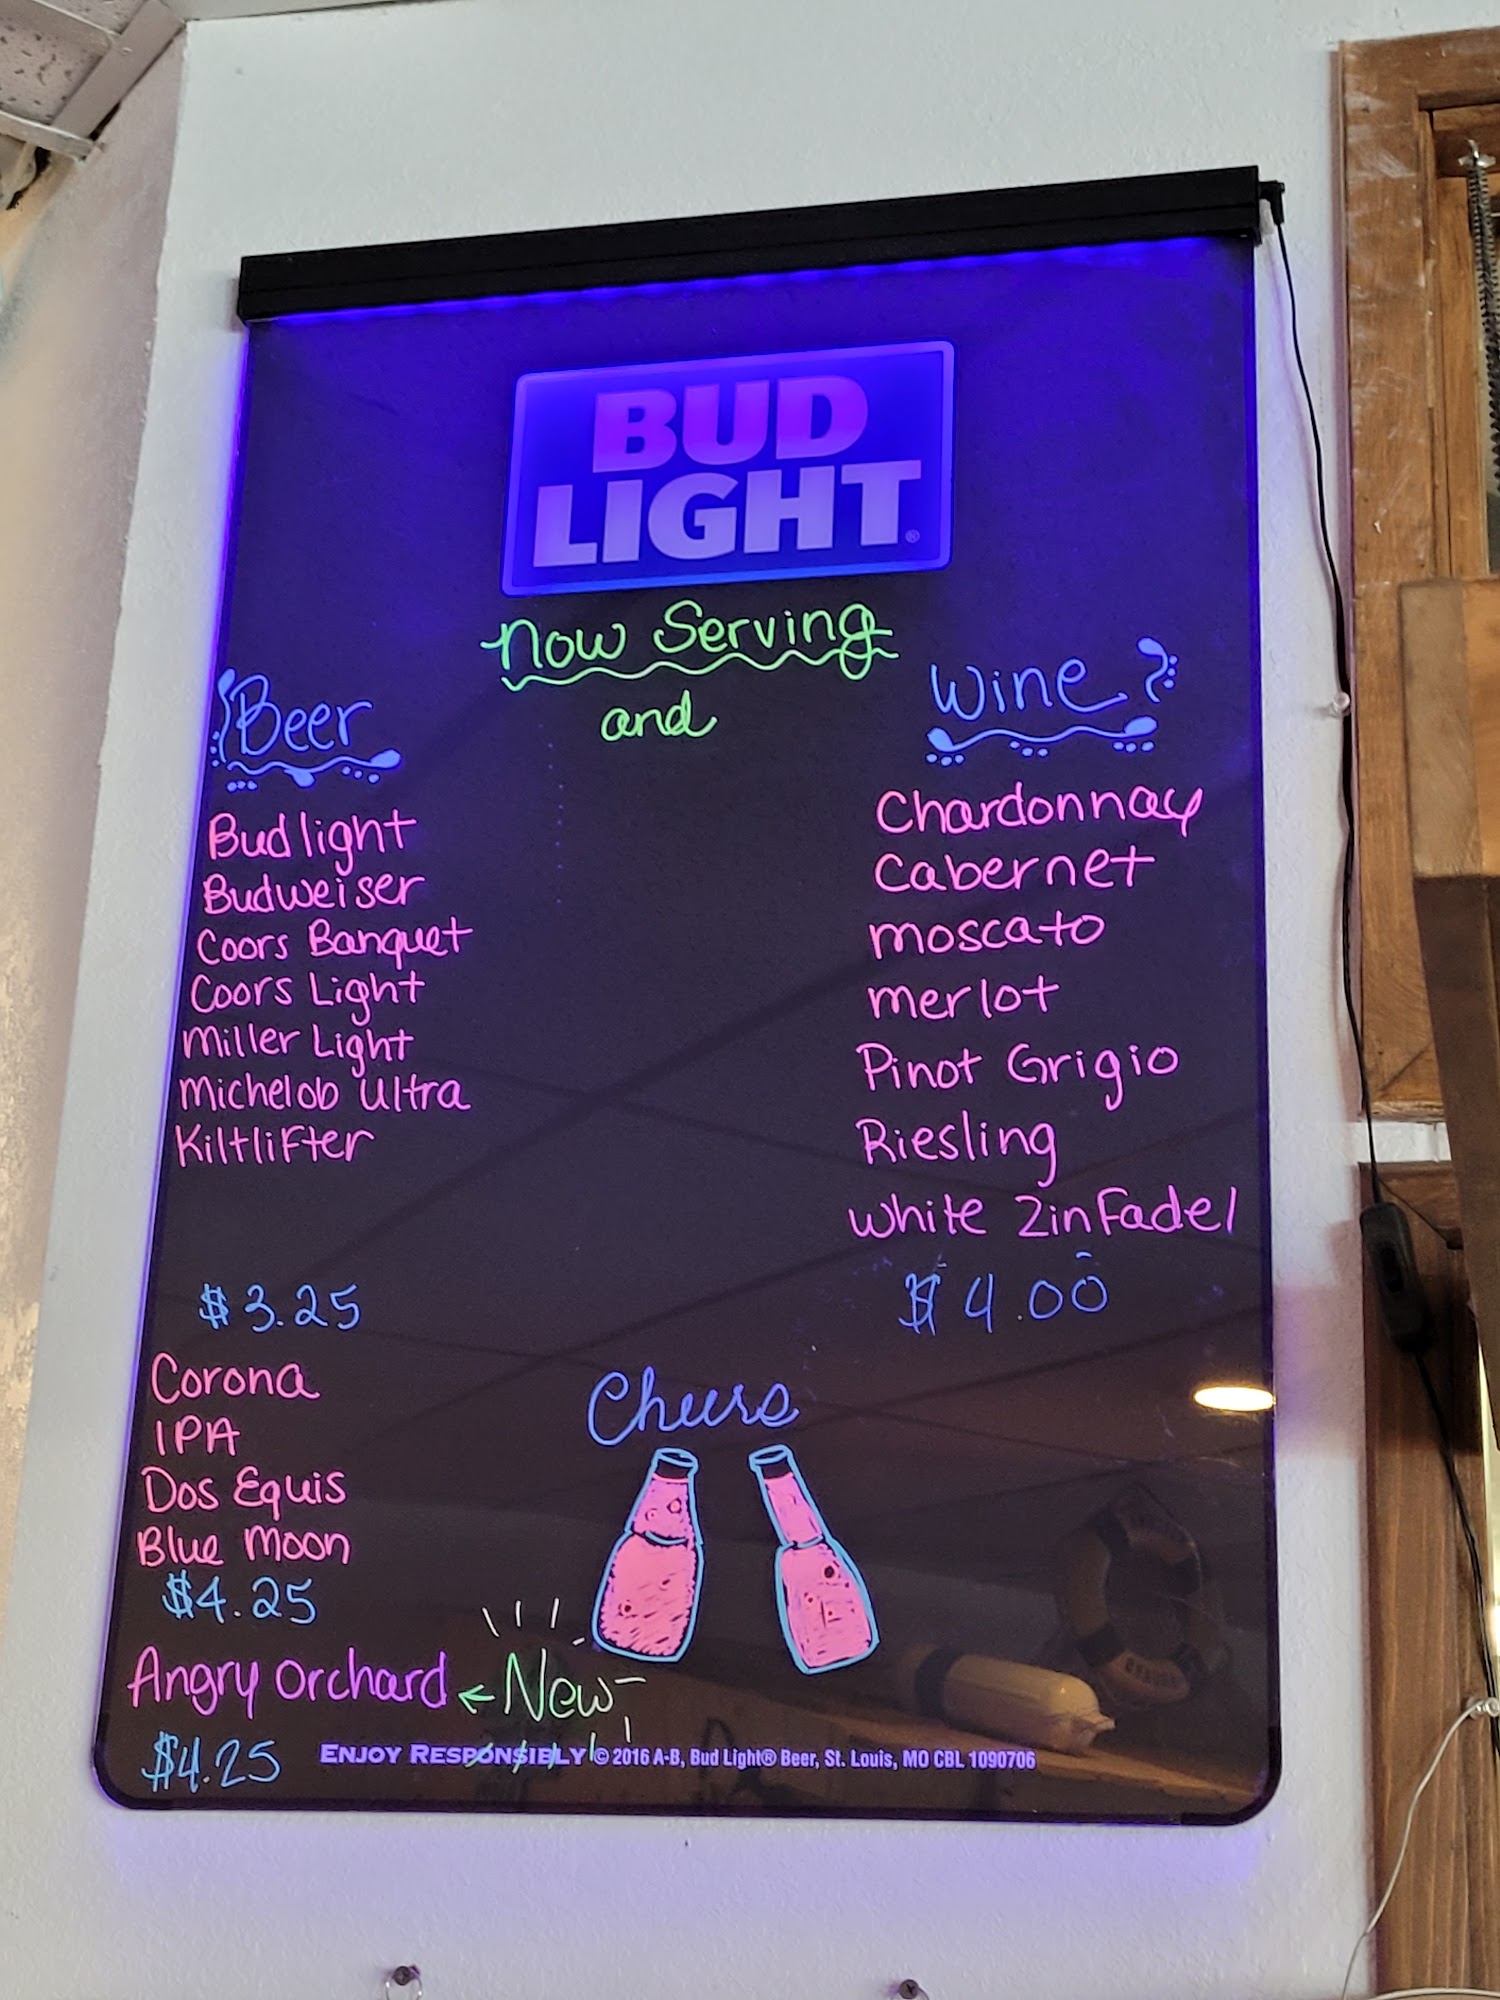 BUD
LIGHT®
Now Serving
and
Beer
Bud light
Budweiser
Coors Banquet
Coors Light
Miller Light
Michelob Ultra
Kiltlifter
$3.25
Corona
IPA
Dos Equis
Blue Moon
$4.25
Angry Orchard ← New
$4.25
Wine
Chardonnay
Cabernet
moscato
merlot
Pinot Grigio
Riesling
White Zinfadel
$4.00
Cheers
ENJOY RESPONSIBLY © 2016 A-B, Bud Light® Beer, St. Louis, MO CBL 1090706